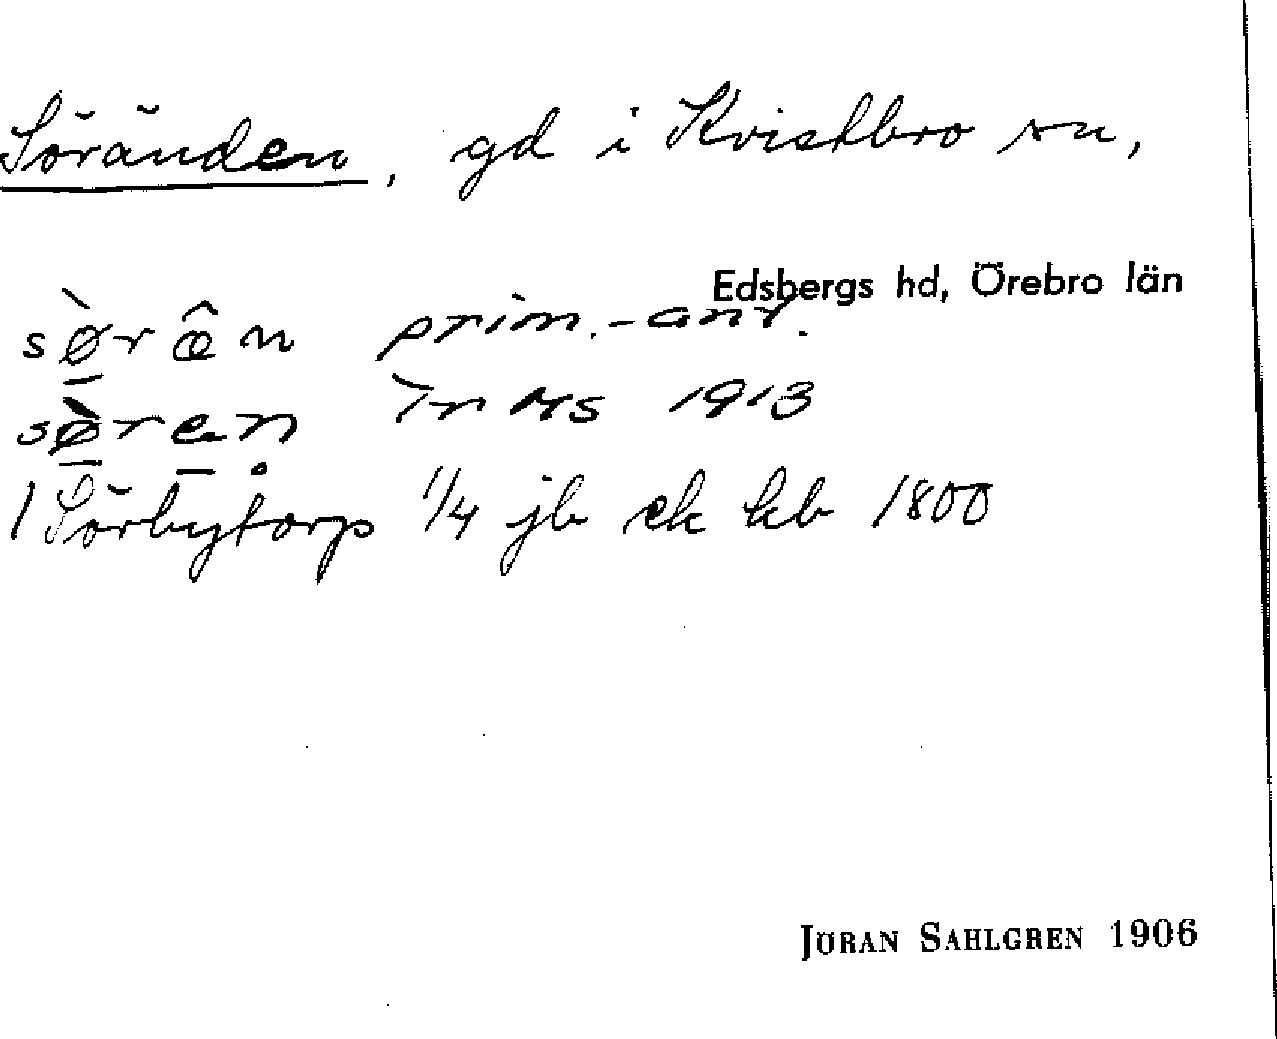 Söränden, gd i Kvistbro sn,
Edsbergs hd, Örebro län
sø̀rœ̂n prim.-ant.
sø̀ren In Ms 1913
1 Sörbytorp 1/4 jb ek kb 1800
JÖRAN SAHLGREN 1906